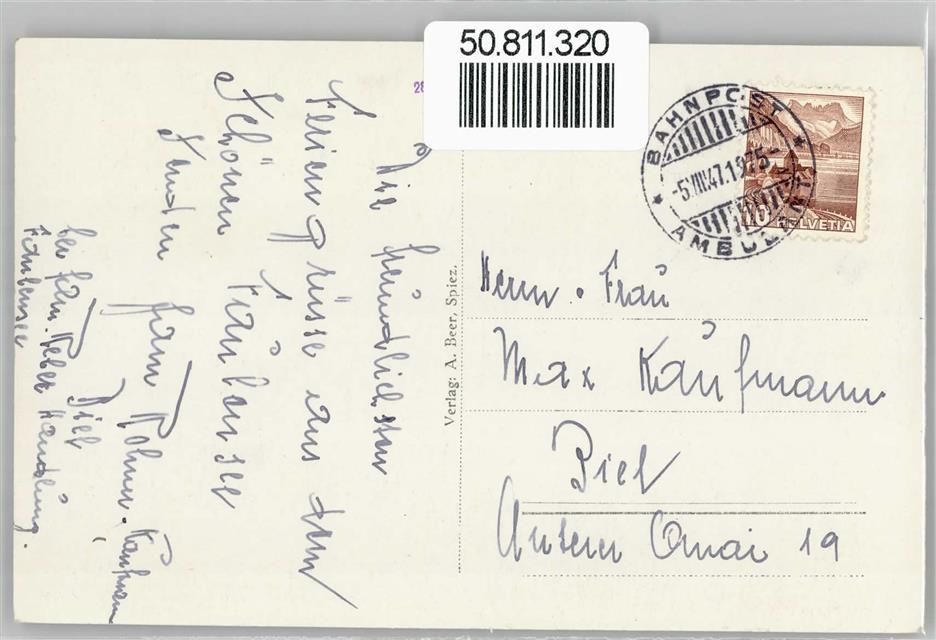 50.811.320
28
BAHNPOST
-5.VIII.47.1975-
AMBULANT
10
HELVETIA
Die freundlichsten
Feriengrüsse aus dem
Schönen Faulensee
Senden
Fam Rohner. Kaufmann
Biel
bei Fam. Reber Handlung.
Faulensee
Verlag: A. Beer, Spiez.
Herrn. Frau
Max Kaufmann
Biel
Unterer Quai 19